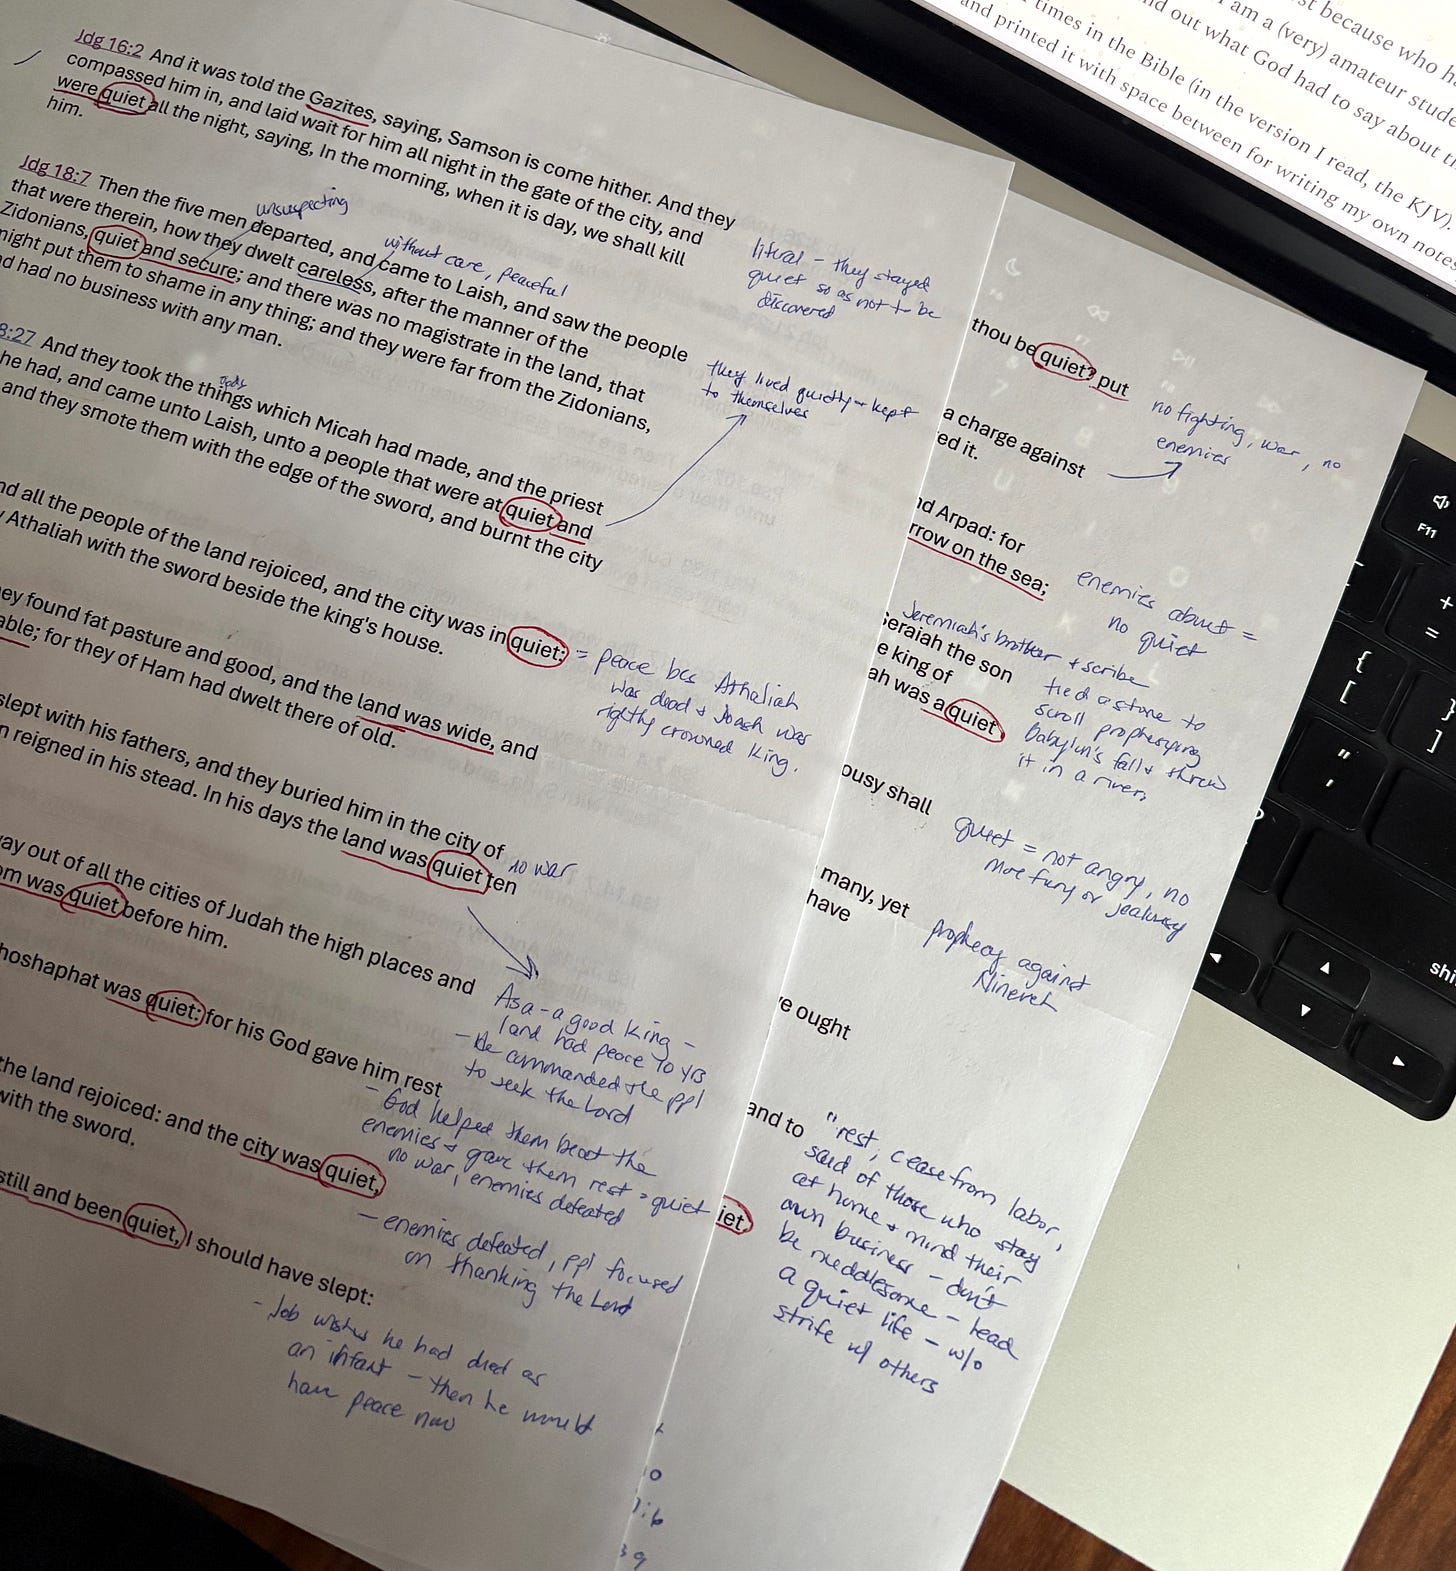 Jdg 16:2 And it was told the Gazites, saying, Samson is come hither. And they
compassed him in, and laid wait for him all night in the gate of the city, and
were quiet all the night, saying, In the morning, when it is day, we shall kill
him.
literal - they stayed
quiet so as not to be
discovered
unsuspecting
Jdg 18:7 Then the five men departed, and came to Laish, and saw the people
without care, peaceful
that were therein, how they dwelt careless, after the manner of the
Zidonians, quiet and secure; and there was no magistrate in the land, that
might put them to shame in any thing; and they were far from the Zidonians,
d had no business with any man.
they lived quietly + kept
to themselves
8:27 And they took the things which Micah had made, and the priest
gods
he had, and came unto Laish, unto a people that were at quiet and
and they smote them with the edge of the sword, and burnt the city
nd all the people of the land rejoiced, and the city was in quiet:
y Athaliah with the sword beside the king's house.
= peace bcs Athaliah
was dead + Joash was
rightly crowned king.
ey found fat pasture and good, and the land was wide, and
able; for they of Ham had dwelt there of old.
slept with his fathers, and they buried him in the city of
n reigned in his stead. In his days the land was quiet ten
no war
ay out of all the cities of Judah the high places and
om was quiet before him.
Asa - a good king -
land had peace 10 yrs
- He commanded the ppl
to seek the Lord
hoshaphat was quiet: for his God gave him rest
- God helped them beat the
enemies + gave them rest = quiet
no war, enemies defeated
the land rejoiced: and the city was quiet,
with the sword.
- enemies defeated, ppl focused
on thanking the Lord
still and been quiet, I should have slept:
- Job wishes he had died as
an infant - then he would
have peace now
thou be quiet? put
a charge against
ed it.
no fighting, war, no
enemies
nd Arpad: for
rrow on the sea;
enemies about =
no quiet
Jeremiah's brother + scribe
Seraiah the son
e king of
ah was a quiet
tied a stone to
scroll prophesying
Babylon's fall + threw
it in a river.
ousy shall
quiet = not angry, no
more fury or jealousy
many, yet
have
prophecy against
Nineveh
e ought
and to
iet,
"rest, cease from labor,
said of those who stay
at home + mind their
own business - don't
be meddlesome - lead
a quiet life - w/o
strife w/ others
st because who h
I am a (very) amateur stude
nd out what God had to say about th
times in the Bible (in the version I read, the KJV).
and printed it with space between for writing my own notes
F11
+
=
{
[
}
]
"
'
shi